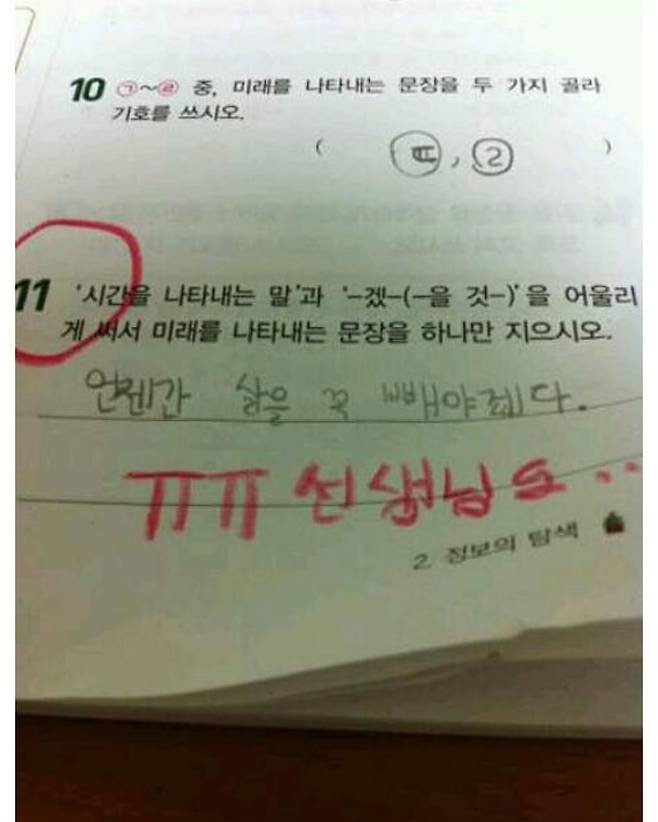 10 ㉠~㉣ 중, 미래를 나타내는 문장을 두 가지 골라
기호를 쓰시오.
( ㉢, ㉣ )
11 '시간을 나타내는 말'과 '-겠-(-을 것-)'을 어울리
게 써서 미래를 나타내는 문장을 하나만 지으시오.
언젠간 살을 꼭 빼야겠다.
ㅠㅠ 선생님도..
2. 정보의 탐색